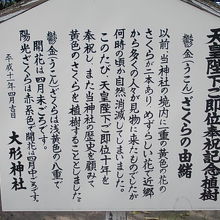 天皇陛下ご即位祝記念植樹
鬱金(うこん)ざくらの由緒
以前、当神社の境内に二重の黄色の花の
さくらが二本あり、めずらしい花で近郷
から多くの人々が見物に来たものでしたが
何時の頃か自然消滅してしまいました。
このたび、天皇陛下ご即位十年を
奉祝し、また当神社の歴史を顧みて
黄色のさくらを植樹することとしました。
鬱金(うこん)ざくらは浅黄色の八重で
開花は四月末ごろです。
陽光ざくらは赤衣色で開花は四月中ごろです。
平成十一年四月吉日
大形神社